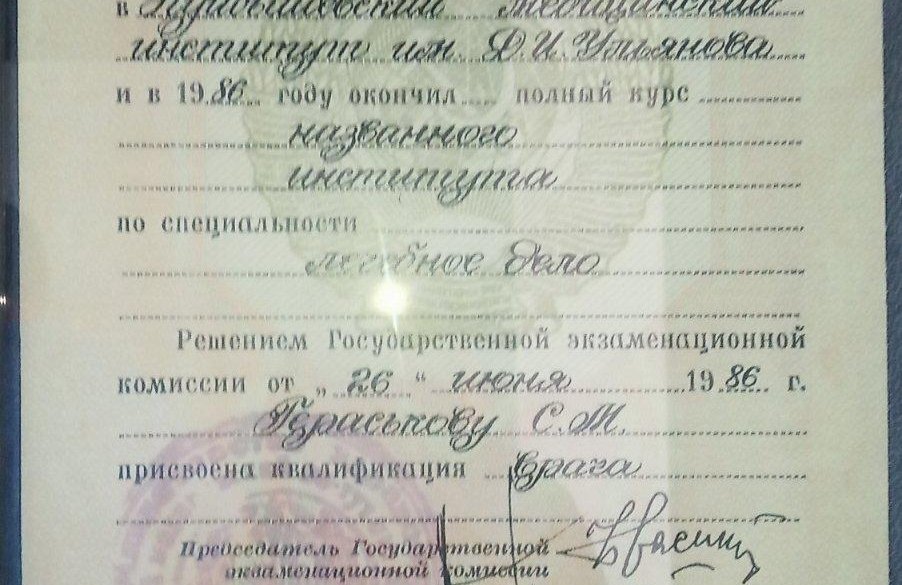 в Куйбышевский медицинский
институт им. Д.И.Ульянова
и в 1986 году окончил полный курс
названного
института
по специальности
лечебное дело
Решением Государственной экзаменационной
комиссии от „26“ июня 1986 г.
Гераськову С.М.
присвоена квалификация врача
Председатель Государственной
экзаменационной комиссии